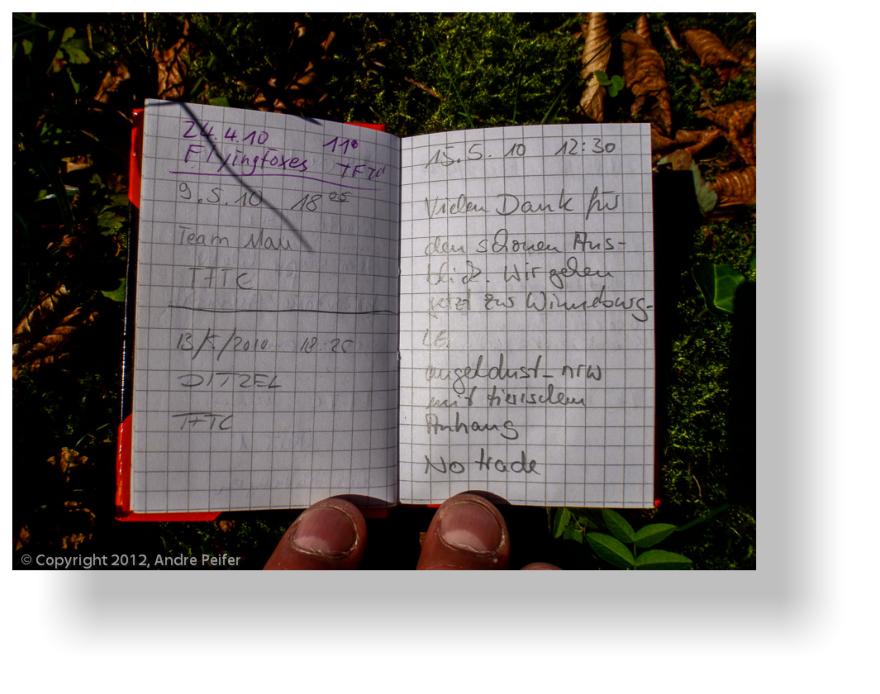 24.4.10 11°
Flyingfoxes TFTC
9.5.10 18 25
Team Mau
TFTC
13/5/2010 18:25
DITZEL
TFTC
15.5.10 12:30
Vielen Dank für
den schönen Aus-
blick. Wir gehen
jetzt zur
mit tierischem
Anhang
No trade
© Copyright 2012, Andre Peifer